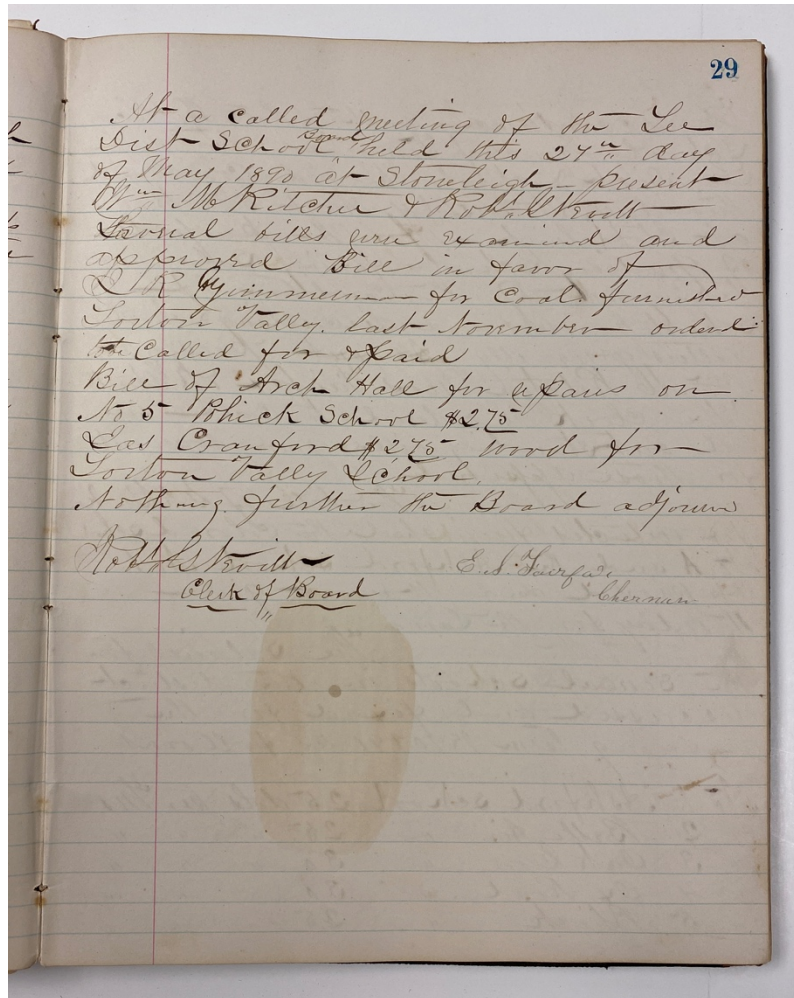 29
At a called meeting of the Lee
Dist School Board held this 27th day
of May 1890 at Stoneleigh - present
Wm McKitcher & Robt.
Several bills were examined and
approved Bill in favor of
L R for Coal furnished
Lorton Vally. last November orderd
to be Called for & paid
Bill of Arch Hall for repairs on
No 5 Pohick School $2.75
Jas Cranford $2.75 wood for
Lorton Vally School.
Nothing further the Board adjourn
Robt.
Clerk of Board
E. S. Fairfax
Cherman